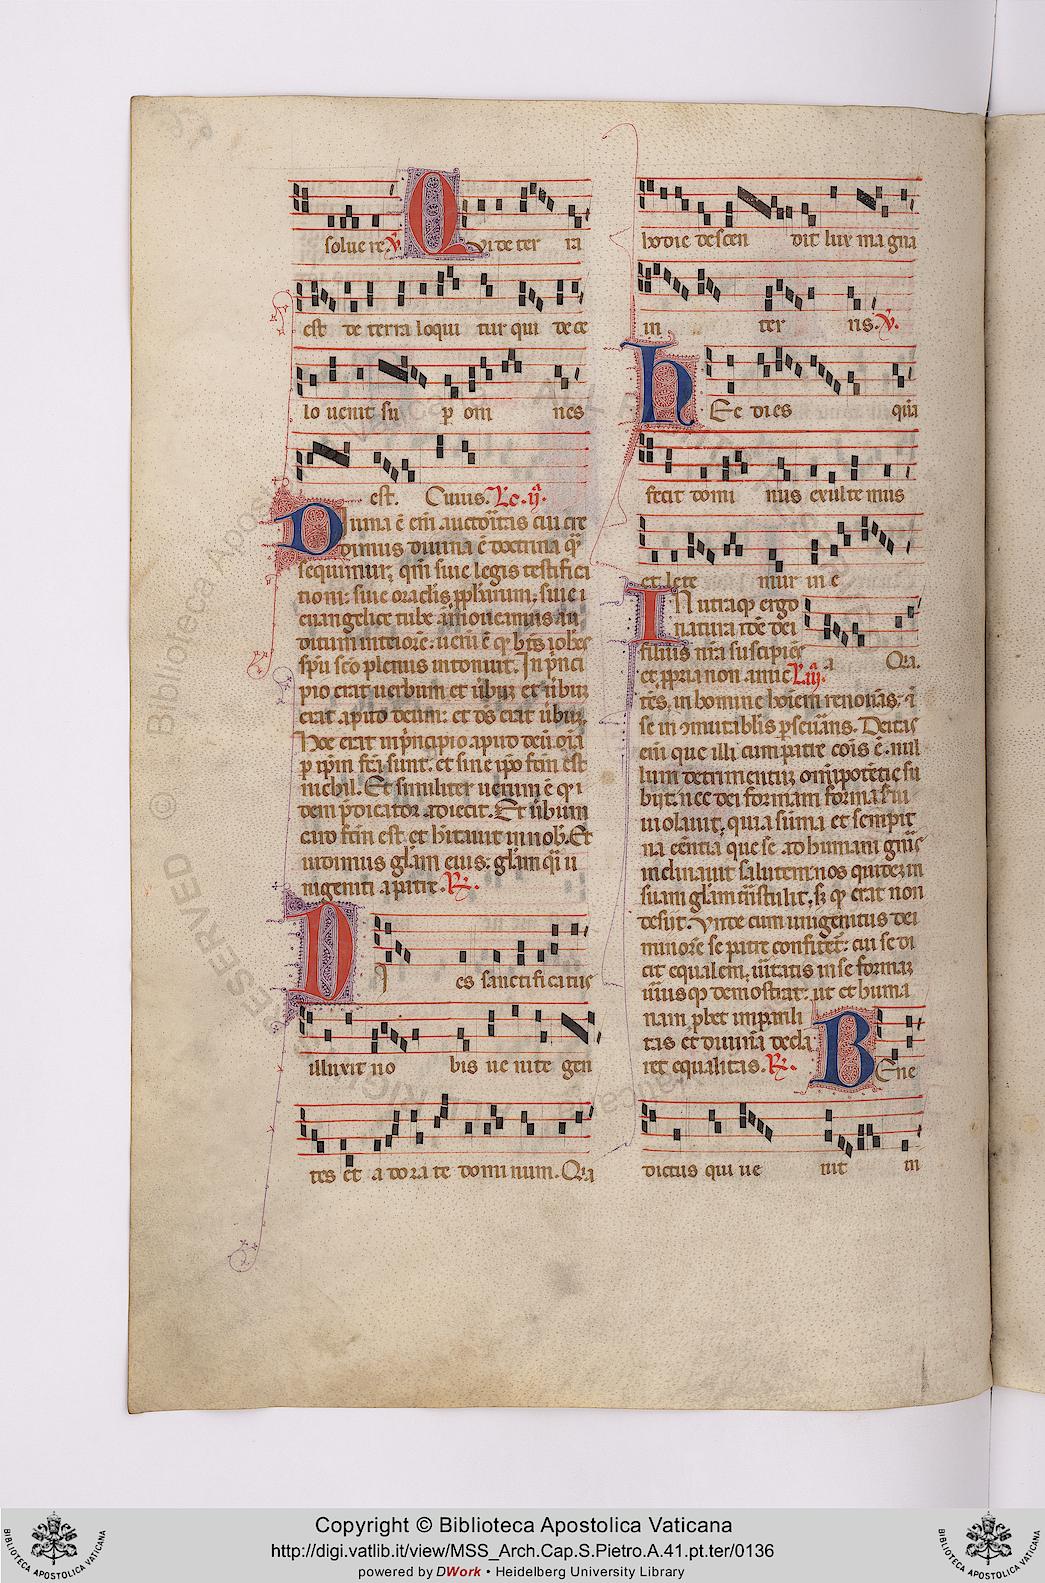 soluere. V. Qui de ter ra
est de terra loqui tur qui de ce
lo uenit su p om nes
est. Cuius. Lc. ij.
Diuina ē eīm auctoritas cui cre
dimus diuina ē doctrina quā
sequimur; qm siue legis testifica
tioni: siue oraclis pphrum; siue
euangelice tube amouemus au
ditum interiorē: uerū ē qd bts iohes
spu sco plenus intonuit. In prīci
pio erat uerbum et ūbuz et ūbuz
erat aput deum: et ds erat ūbuz.
Hoc erat in pncipio aput deū. oīa
p ipm fcā sunt. et sine ipo fcm est
nichil. Et similiter uerum ē qd i
dem pdicator adiecit. Et ūbum
caro fcm est et hitauit in nob. Et
uidimus glam eius: glam qsi u
nigeniti a patre. R.
Di es sanctificatus
illuxit no bis ue nite gen
tes et a do ra te domi num. Qia
hodie descen dit lux ma gna
in ter ris. V.
Hec dies quā
fecit domi nus exulte mus
et lete mur in e
In utraqp ergo
natura idē dei
filius nra suscipies a Qia.
et ppria non amic L. iij.
tēs; in homine hoīem renouās; i
se in cmutablis pseuāns. Deitas
eīm que illi cum patre cois ē. nul
lum detrimentuz omipotētie su
biit. nec dei formam forma sui
uiolauit. quia sūma et sempit
na eēntia que se ad humani gnīs
inclinauit salutem; nos quidez in
suam glam tnstulit. s; qd erat non
desiit. Vnde cum unigenitus dei
minorē se patre confitet: cui se di
cit equalem, uitatis in se formaz
utriusqp demostrat. ut et huma
nam pbet impari
tas et diuinā decla
ret equalitas. R. Bene
dictus qui ue nit in
Copyright © Biblioteca Apostolica Vaticana
http://digi.vatlib.it/view/MSS_Arch.Cap.S.Pietro.A.41.pt.ter/0136
powered by DWork • Heidelberg University Library
BIBLIOTECA APOSTOLICA VATICANA
BIBLIOTECA APOSTOLICA VATICANA